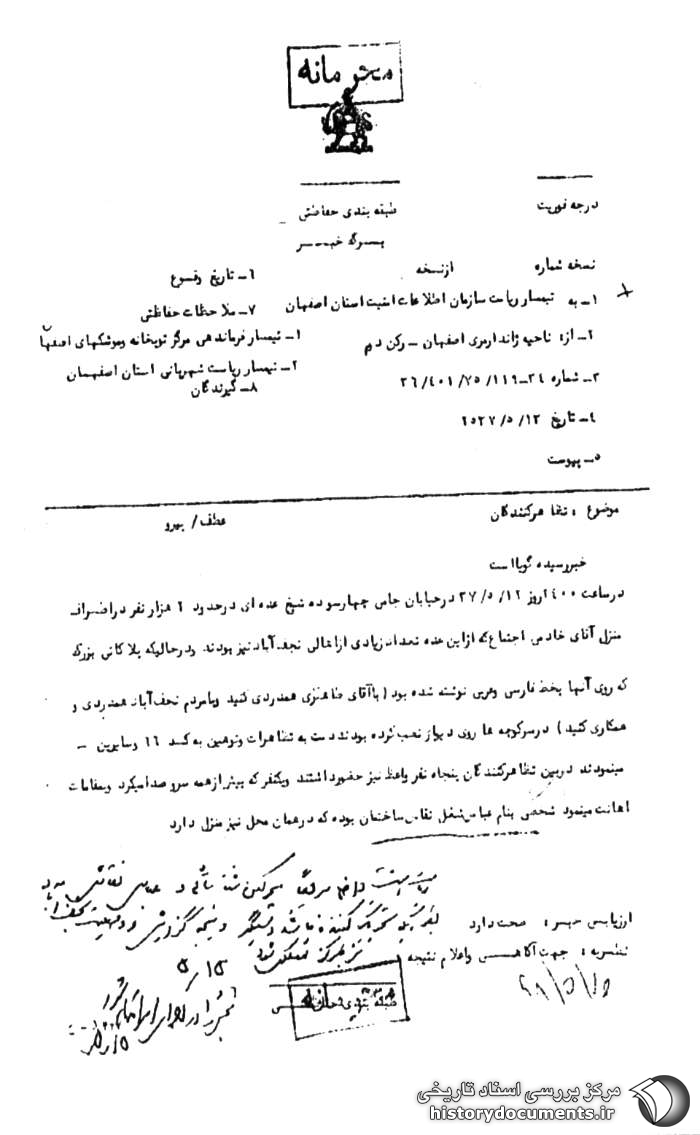 محرمانه
درجه فوریت
طبقه بندی حفاظتی
برگ خبر
نسخه شماره از نسخه
۱- به تیمسار ریاست سازمان اطلاعات امنیت استان اصفهان
۲- از: ناحیه ژاندارمری اصفهان - رکن دوم
۳- شماره ۲۴-۱۱۹/۷۵/۴۰۱/۲۶
۴- تاریخ ۱۲/۵/۲۵۳۷
۵- پیوست
۶- تاریخ وقوع
۷- ملاحظات حفاظتی
۱- تیمسار فرماندهی مرکز توپخانه وموشکهای اصفهان
۲- تیمسار ریاست شهربانی استان اصفهان
۸- گیرندگان
موضوع : تظاهرکنندگان عطف / پیرو
خبر رسیده گویا است
در ساعت ۱۴۰۰ روز ۱۲/۵/۳۷ در خیابان جامی چهارسو ده شیخ عده ای در حدود ۲ هزار نفر در اطراف
منزل آقای خادمی اجتماع که از این عده تعداد زیادی از اهالی نجف آباد نیز بودند ودر حالیکه پلاکاتی بزرگ
که روی آنها بخط فارسی وعربی نوشته شده بود ( باآقای طاهری همدردی کنید وبامردم نجف آباد همدردی و
همکاری کنید ) در سر کوچه ها روی دیوار نصب کرده بودند دست به تظاهرات وتوهین به کد ۱۶ وسایرین -
مینمودند در بین تظاهرکنندگان پنجاه نفر واعظ نیز حضور داشتند ویکنفر که بیش از همه سر و صدا میکرد وبمقامات
اهانت مینمود شخصی بنام عباس شغل نقاش ساختمان بوده که در همان محل نیز منزل دارد
ارزیابی خبر : صحت دارد
نظریه : جهت آگاهی واعلام نتیجه
عباس نقاش
نیز بمرکز منعکس شود
۱۵/۵
طبقه بندی حفاظتی
محرمانه
مرکز بررسی اسناد تاریخی
historydocuments.ir